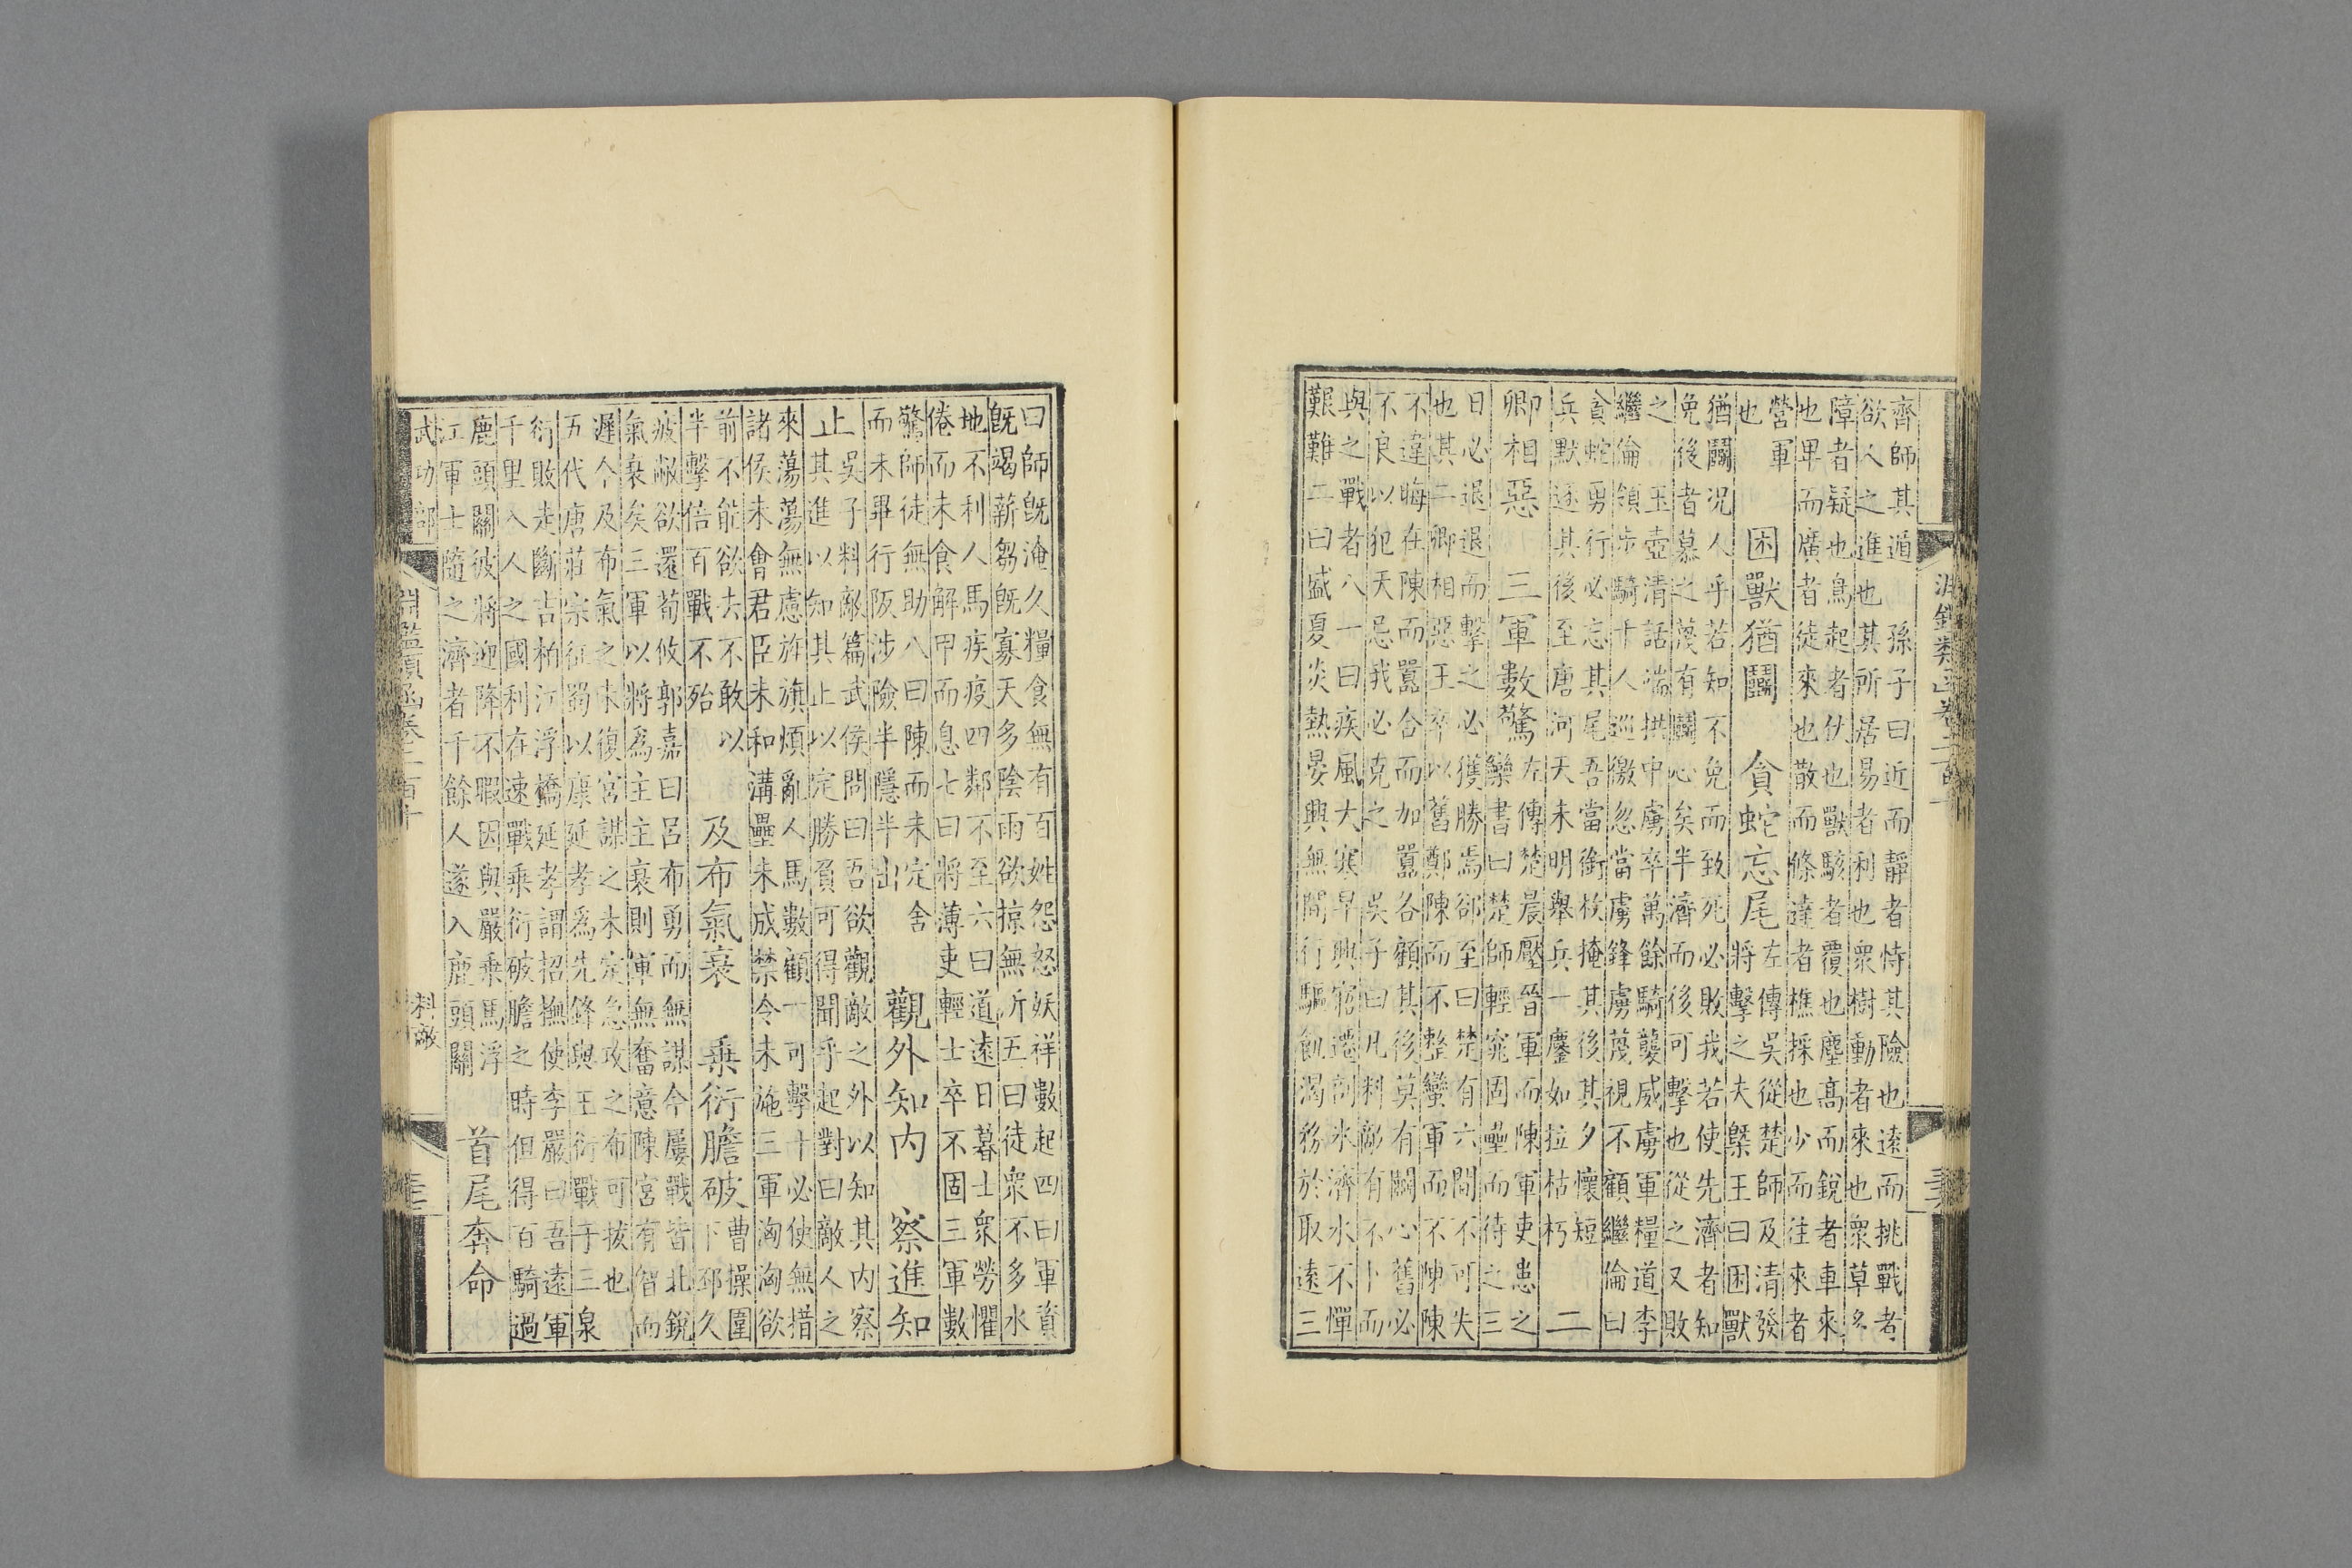 淵鑑類函卷二百十
齊師其遁　孫子曰近而靜者恃其險也遠而挑戰者
欲人之進也其所居易者利也衆樹動者來也衆草多
障者疑也鳥起者伏也獸駭者覆也塵高而銳者車來
也卑而廣者徒來也散而條達者樵採也少而往來者
營軍
也
困獸猶鬬　貪蛇忘尾
左傳吳從楚師及清發
將擊之夫槩王曰困獸
猶鬬况人乎若知不免而致死必敗我若使先濟者知
免後者慕之蔑有鬬心矣半濟而後可擊也從之又敗
之　玉壺清話端拱中虜卒萬餘騎襲威虜軍糧道李
繼倫領步騎千人巡徼忽當虜鋒虜蔑視不顧繼倫曰
貪蛇勇行必忘其尾吾當銜枚掩其後其夕懷短
兵默逐其後至唐河天未明舉兵一鏖如拉枯朽
二
卿相惡　三軍數驚
左傳楚晨壓晉軍而陳軍吏患之
欒書曰楚師輕窕固壘而待之三
日必退退而擊之必獲勝焉郤至曰楚有六間不可失
也其二卿相惡王卒以舊鄭陳而不整蠻軍而不陳陳
不違晦在陳而囂合而加囂各顧其後莫有鬬心舊必
不良以犯天忌我必克之　吳子曰凡料敵有不卜而
與之戰者八一曰疾風大寒早興寤遷剖氷濟水不憚
艱難二曰盛夏炎熱晏興無間行驅飢渴務於取遠三
曰師旣淹久糧食無有百姓怨怒妖祥數起四曰軍資
旣竭薪芻旣寡天多陰雨欲掠無所五曰徒衆不多水
地不利人馬疾疫四鄰不至六曰道遠日暮士衆勞懼
倦而未食解甲而息七曰將薄吏輕士卒不固三軍數
驚師徒無助八曰陳而未定舍
而未畢行阪涉險半隱半出
觀外知内　察進知
止
吳子料敵篇武侯問曰吾欲觀敵之外以知其内察
其進以知其止以定勝負可得聞乎起對曰敵人之
來蕩蕩無慮旌旗煩亂人馬數顧一可擊十必使無措
諸侯未會君臣未和溝壘未成禁令未施三軍洶洶欲
前不能欲去不敢以
半擊倍百戰不殆
及布氣衰　乗衍膽破
曹操圍
下邳久
疲敝欲還荀攸郭嘉曰呂布勇而無謀今屢戰皆北銳
氣衰矣三軍以將為主主衰則軍無奮意陳宮有智而
遲今及布氣之未復宮謀之未定急攻之布可拔也
五代唐莊宗征蜀以康延孝為先鋒與王衍戰于三泉
衍敗走斷吉柏江浮橋延孝謂招撫使李嚴曰吾遠軍
千里入人之國利在速戰乗衍破膽之時但得百騎過
鹿頭關彼將迎降不暇因與嚴乗馬浮
江軍士隨之濟者千餘人遂入鹿頭關
首尾奔命
武功部
淵鑑類函卷二百十
料敵